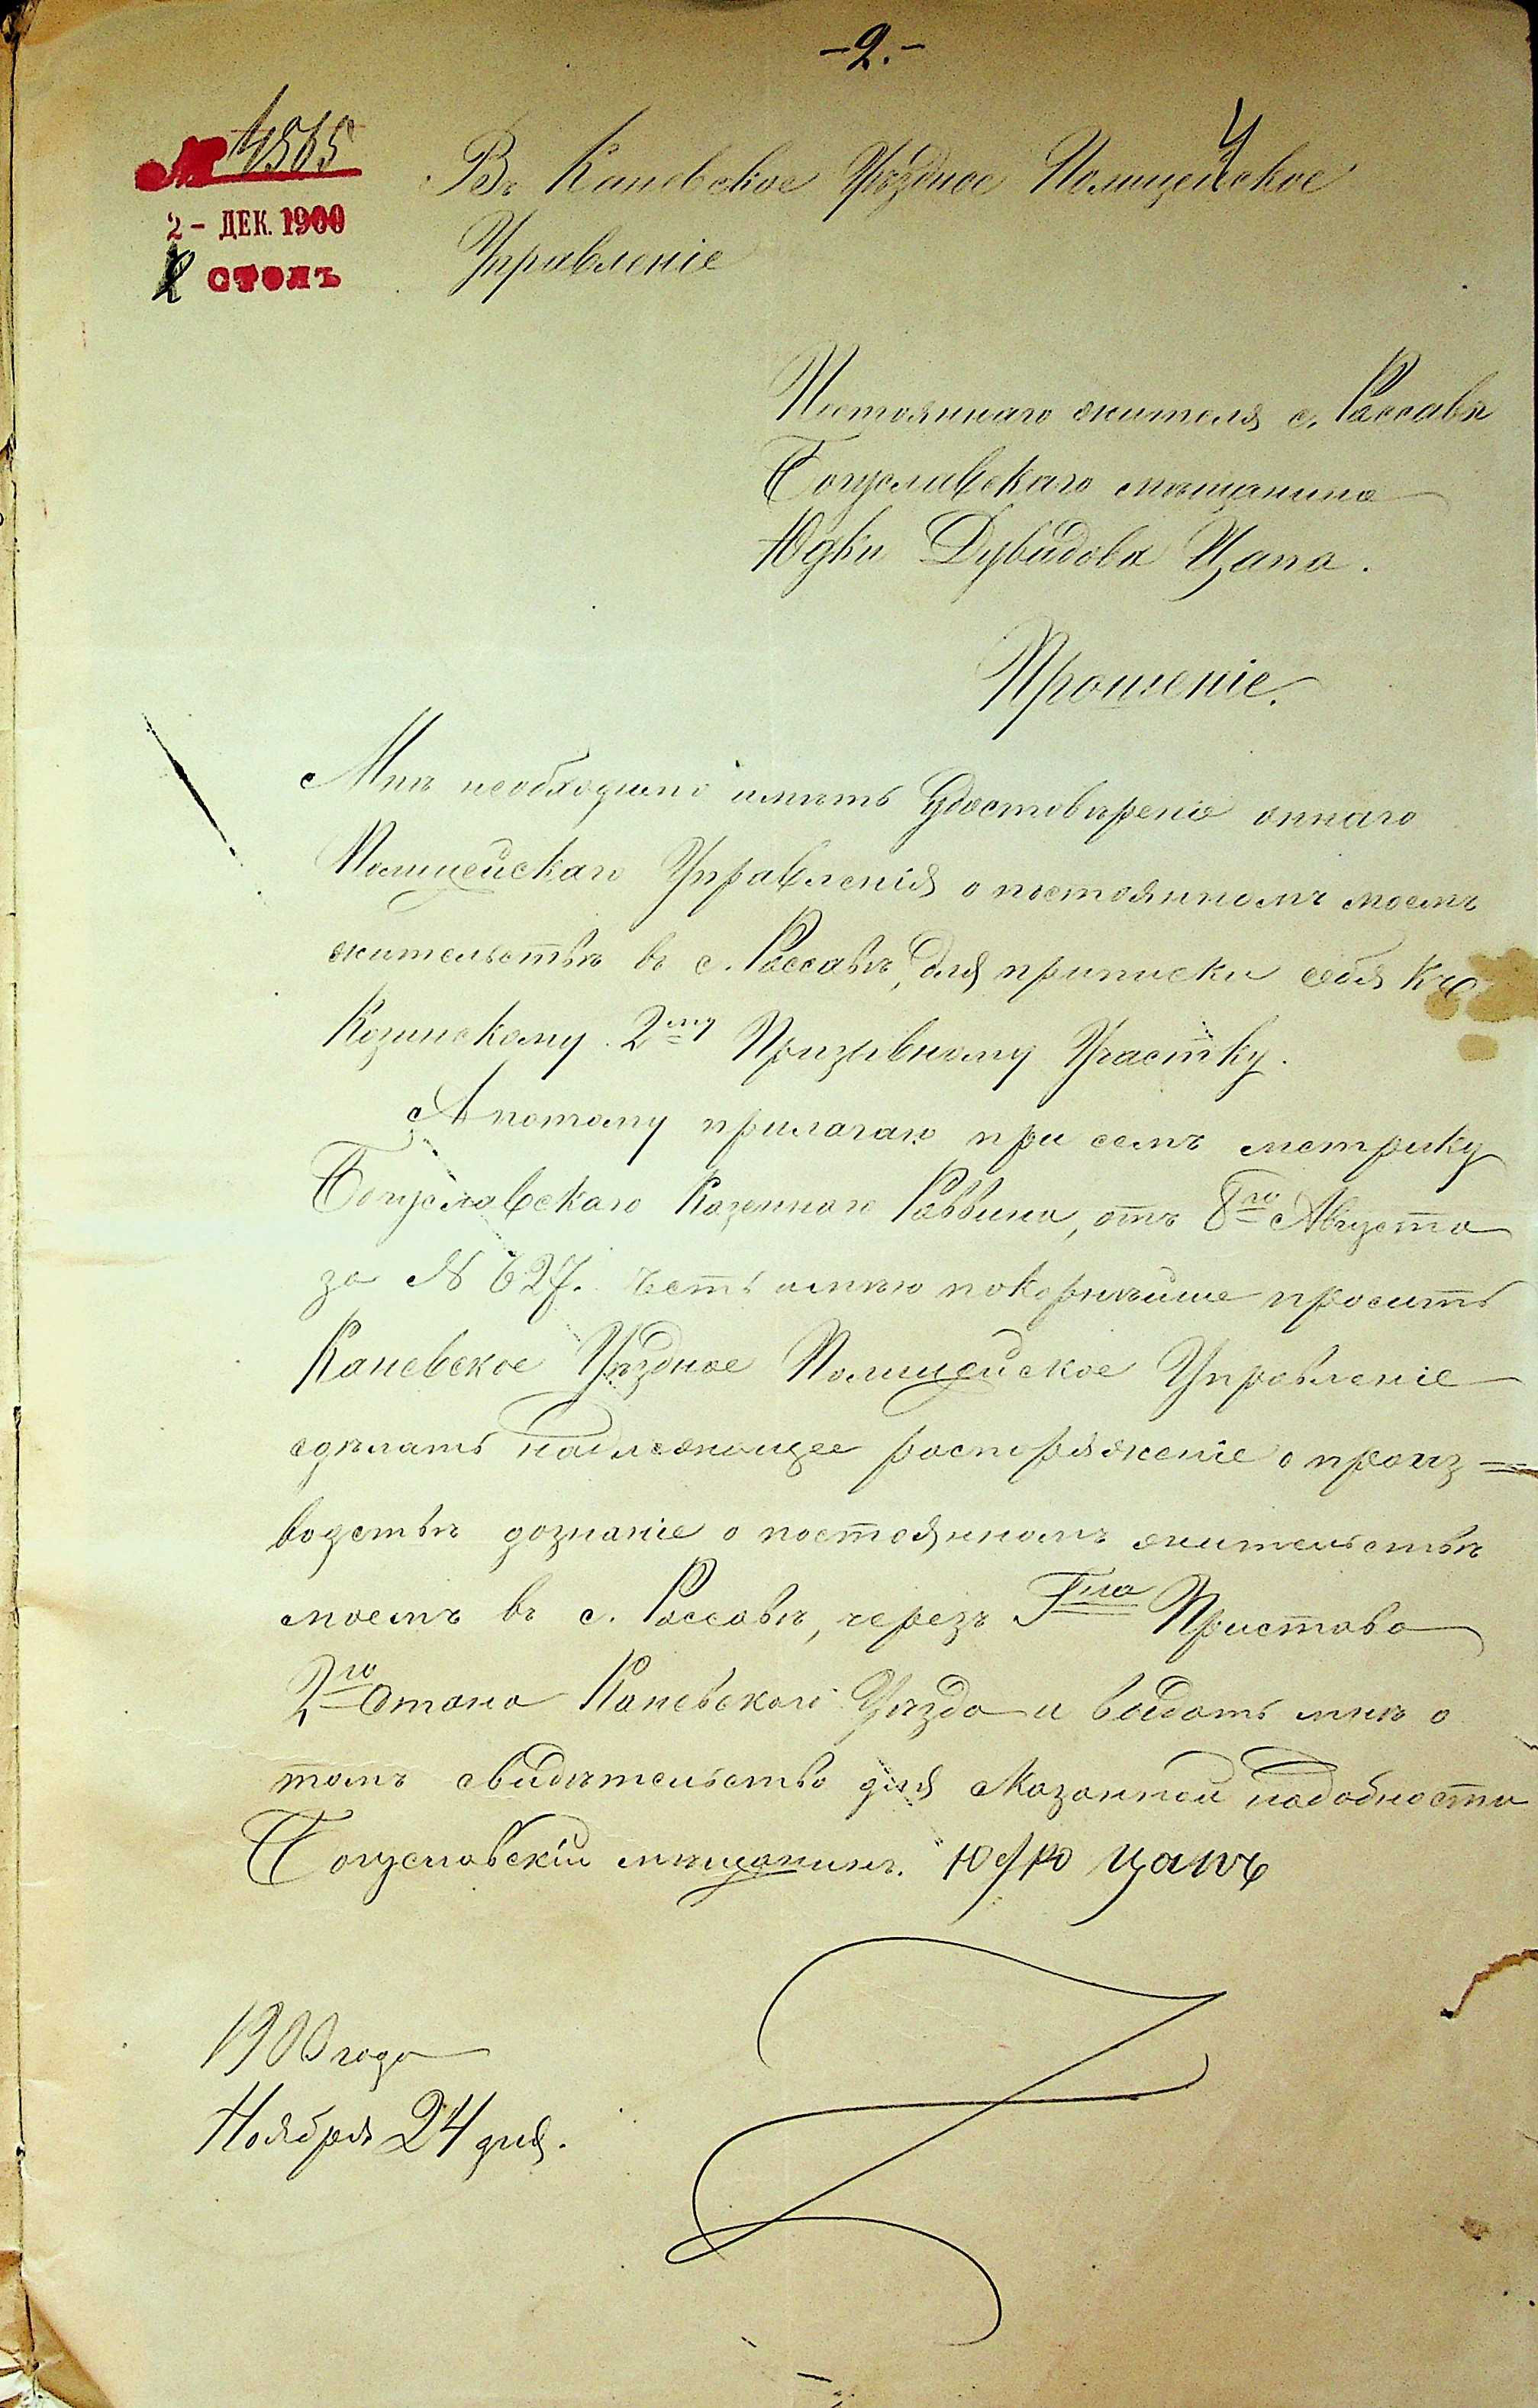 -2.-
№ 4565
2 - ДЕК. 1900
2 СТОЛЪ
4
Въ Каневское Уѣздное Полицейское
Управленіе
Постояннаго жителя с. Россавы
Богуславскаго мѣщанина
Юдки Дувидова Цапа.
Прошеніе.
Мнѣ необходимо имѣть Удостовѣреніе оннаго
Полицейскаго Управленія о постоянномъ моемъ
жительствѣ въ с. Россавѣ, для приписки себя къ
Козинскому 2му Призывному Участку.
А потому прилагаю при семъ метрику
Богуславскаго Казеннаго Раввина, отъ 8го Августа
за № 627. Честь имѣю покорнѣйше просить
Каневское Уѣздное Полицейское Управленіе
сдѣлать надлежащее распоряженіе о произ=
водствѣ дознаніе о постоянномъ жительствѣ
моемъ въ с. Россавѣ, черезъ Гна Пристава
2го Стана Каневскаго Уѣзда и видать мнѣ о
томъ свидѣтельство для сказанной надобности
Богуславскій мѣщанинъ. Юдко Цапъ
1900 года
Ноября 24 дня.